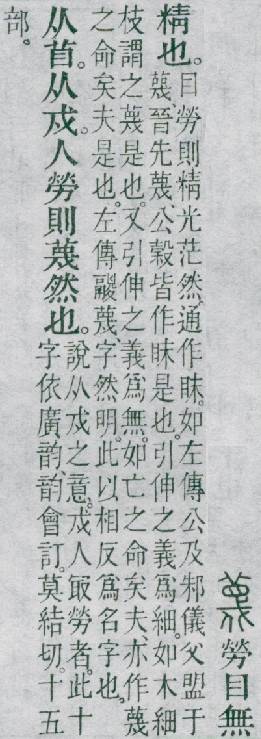 勞目無
精也。
目勞則精光茫然。通作眜。如左傳公及邾儀父盟于
蔑、晉先蔑、公穀皆作眜是也。引伸之義爲細。如木細
枝謂之蔑是也。又引伸之義爲無。如亡之命矣夫、亦作蔑
之命矣夫是也。左傳鬷蔑、字然明。此以相反爲名字也。
从苜。从戍。人勞則蔑然也。
說从戍之意。戍人冣勞者。此十
字依廣韵、韵會訂。莫結切。十五
部。